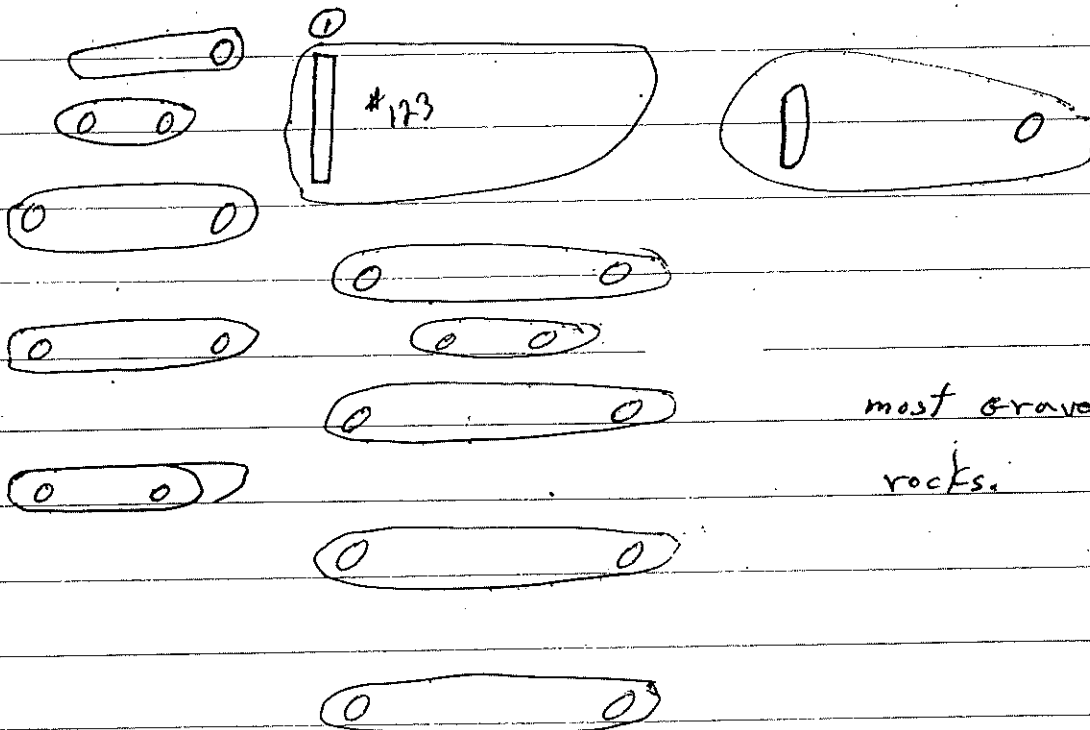 ①
#123
most grave
rocks.